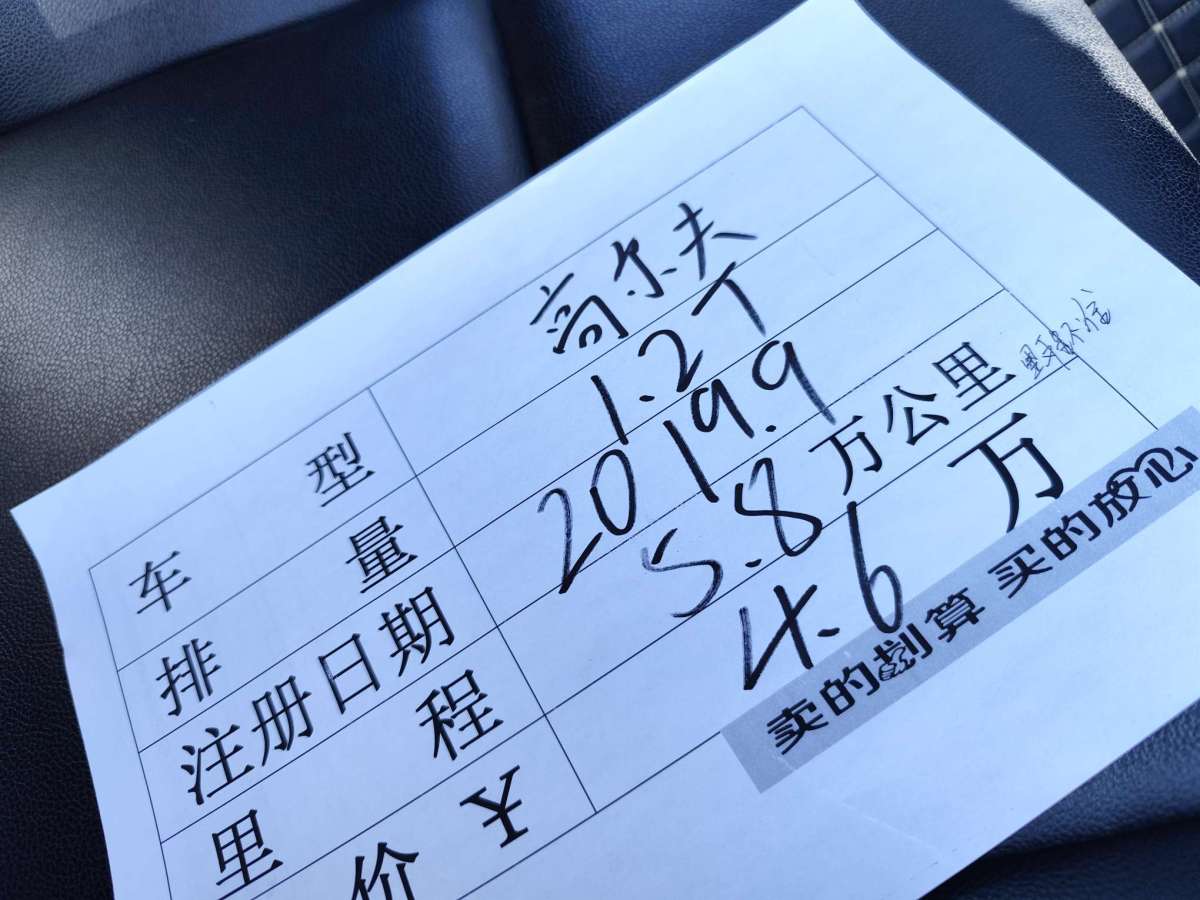 车 型 高尔夫
排 量 1.2T
注册日期 2019.9
里 程 5.8 万公里
价 ¥ 4.6 万
卖的划算 买的放心